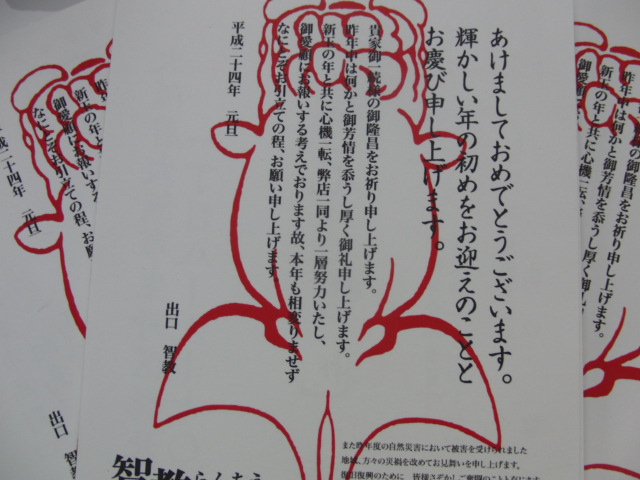 あけましておめでとうございます。
輝かしい年の初めをお迎えのことと
お慶び申し上げます。
貴家御一統様の御隆昌をお祈り申し上げます。
昨年中は何かと御芳情を忝うし厚く御礼申し上げます。
新玉の年と共に心機一転、弊店一同より一層努力いたし、
御愛顧にお報いする考えでおります故、本年も相変りませず
なにとぞお引立ての程、お願い申し上げます
平成二十四年 元旦
出口 智教
また昨年度の自然災害において被害を受けられました
地域、方々の災禍を改めてお見舞いを申し上げます。
復旧復興のために 皆様さぞかしご奮闘のことと存じます
智教らんちう
昨年中
新玉の年
御愛顧にお報いする
なにとぞお引立ての程、お願
平成二十四年 元旦
出口 智
昨年中は何かと御芳情を忝うし厚く御礼
新玉の年と共に心機一転、弊